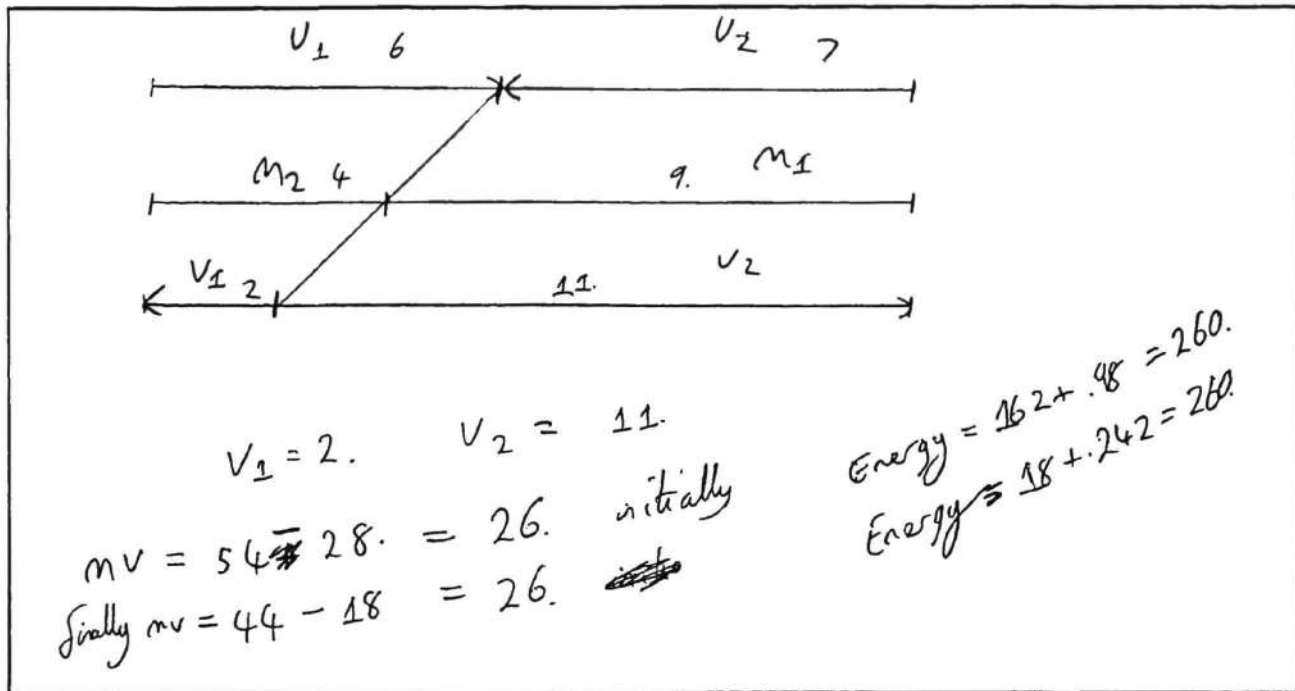 U1 6 U2 7
M2 4 9. M1
V1 2 11. V2
V1 = 2. V2 = 11.
mv = 54 - 28. = 26. initially
finally mv = 44 - 18 = 26.
Energy = 162 + .98 = 260.
Energy = 18 + .242 = 260.